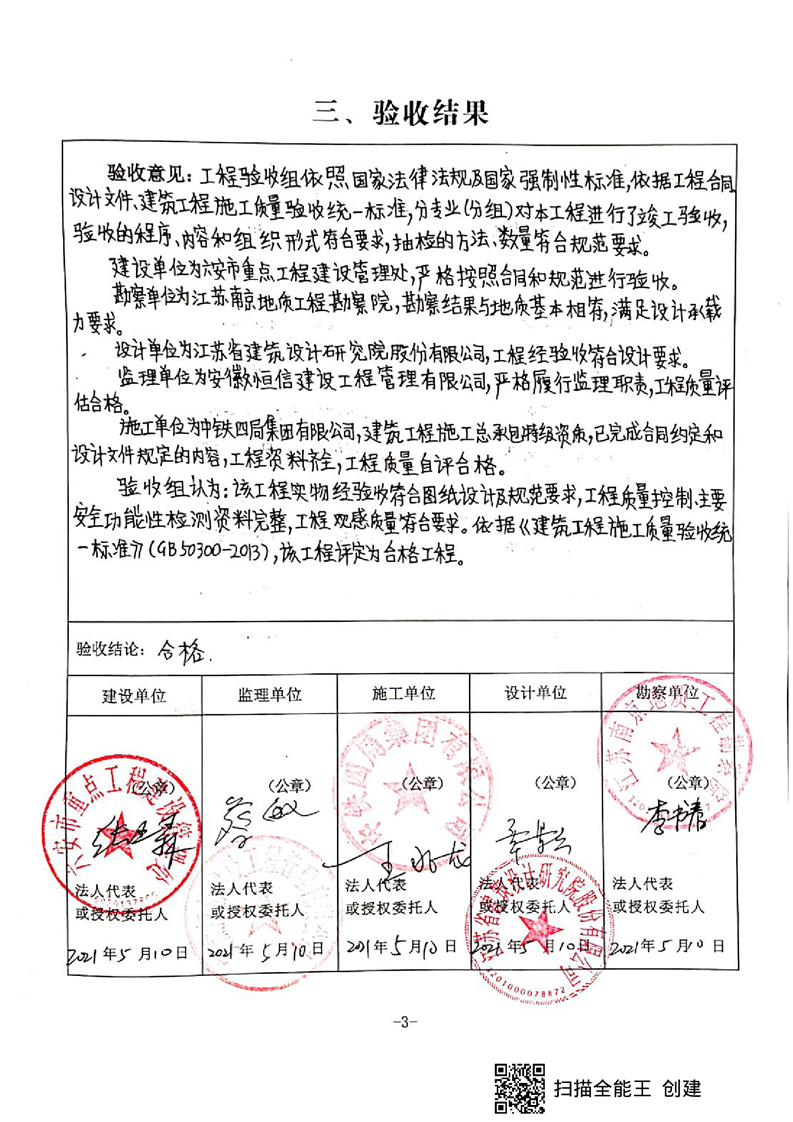 三、验收结果
验收意见：工程验收组依照国家法律法规及国家强制性标准,依据工程合同、
设计文件、建筑工程施工质量验收统一标准,分专业(分组)对本工程进行了竣工验收,
验收的程序、内容和组织形式符合要求,抽检的方法、数量符合规范要求。
建设单位为六安市重点工程建设管理处,严格按照合同和规范进行验收。
勘察单位为江苏南京地质工程勘察院,勘察结果与地质基本相符,满足设计承载
力要求。
设计单位为江苏省建筑设计研究院股份有限公司,工程经验收符合设计要求。
监理单位为安徽恒信建设工程管理有限公司,严格履行监理职责,工程质量评
估合格。
施工单位为中铁四局集团有限公司,建筑工程施工总承包特级资质,已完成合同约定和
设计文件规定的内容,工程资料齐全,工程质量自评合格。
验收组认为:该工程实物经验收符合图纸设计及规范要求,工程质量控制、主要
安全功能性检测资料完整,工程观感质量符合要求。依据《建筑工程施工质量验收统
一标准》(GB50300-2013),该工程评定为合格工程。
验收结论：合格.
建设单位 监理单位 施工单位 设计单位 勘察单位
(公章) (公章) (公章) (公章) (公章)
六安市重点工程建设管理处
中铁四局集团有限公司
江苏省建筑设计研究院股份有限公司
3201000078872
江苏南京地质工程勘察院
法人代表 法人代表 法人代表 法人代表 法人代表
或授权委托人 或授权委托人 或授权委托人 或授权委托人 或授权委托人
2021年5月10日 2021年5月10日 2021年5月10日 2021年5月10日 2021年5月10日
-3-
扫描全能王 创建